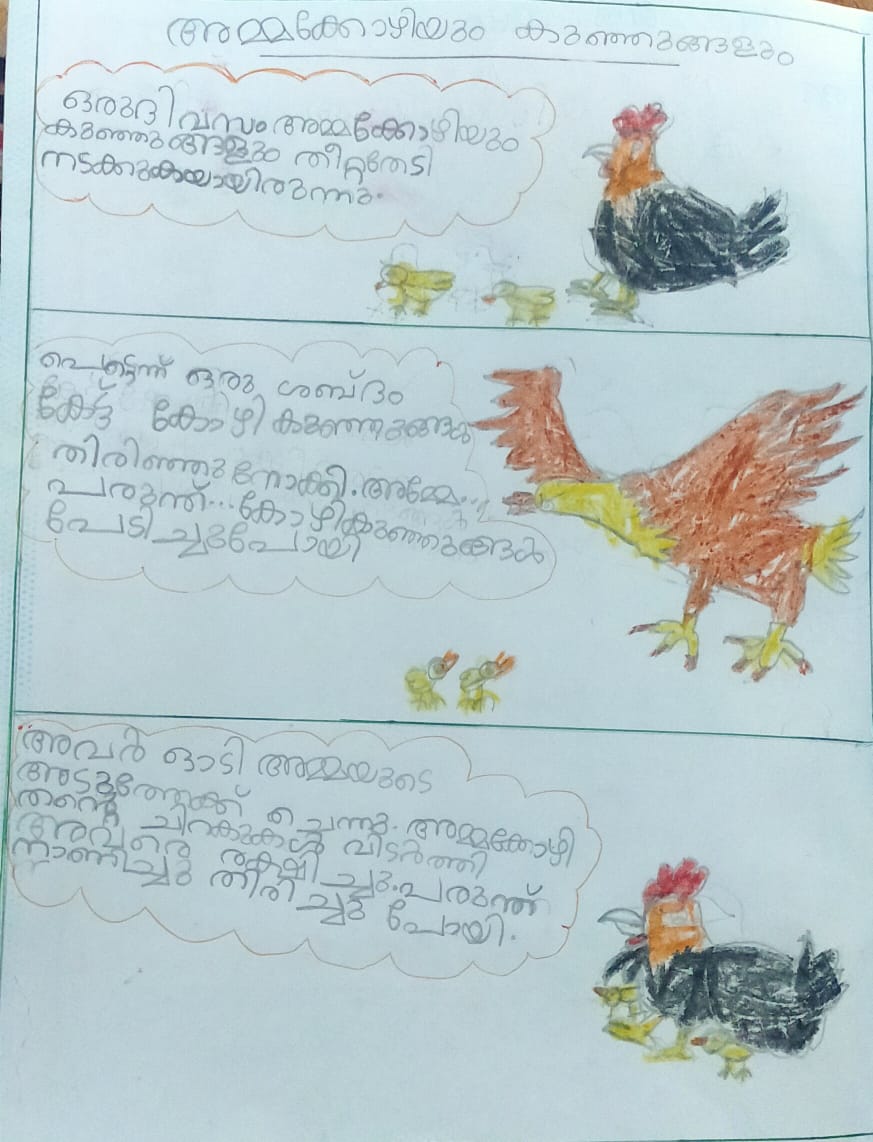 അമ്മക്കോഴിയും കുഞ്ഞുങ്ങളും
ഒരുദിവസം അമ്മക്കോഴിയും
കുഞ്ഞുങ്ങളും തീറ്റതേടി
നടക്കുകയായിരുന്നു.
പെട്ടെന്ന് ഒരു ശബ്ദം
കേട്ട് കോഴി കുഞ്ഞുങ്ങൾ
തിരിഞ്ഞുനോക്കി. അമ്മേ...
പരുന്ത്... കോഴികുഞ്ഞുങ്ങൾ
പേടിച്ചുപോയി
അവർ ഓടി അമ്മയുടെ
അടുത്തേക്ക് ചെന്നു. അമ്മക്കോഴി
തന്റെ ചിറകുകൾ വിടർത്തി
അവരെ രക്ഷിച്ചു. പരുന്ത്
നാണിച്ചു തിരിച്ചു പോയി.